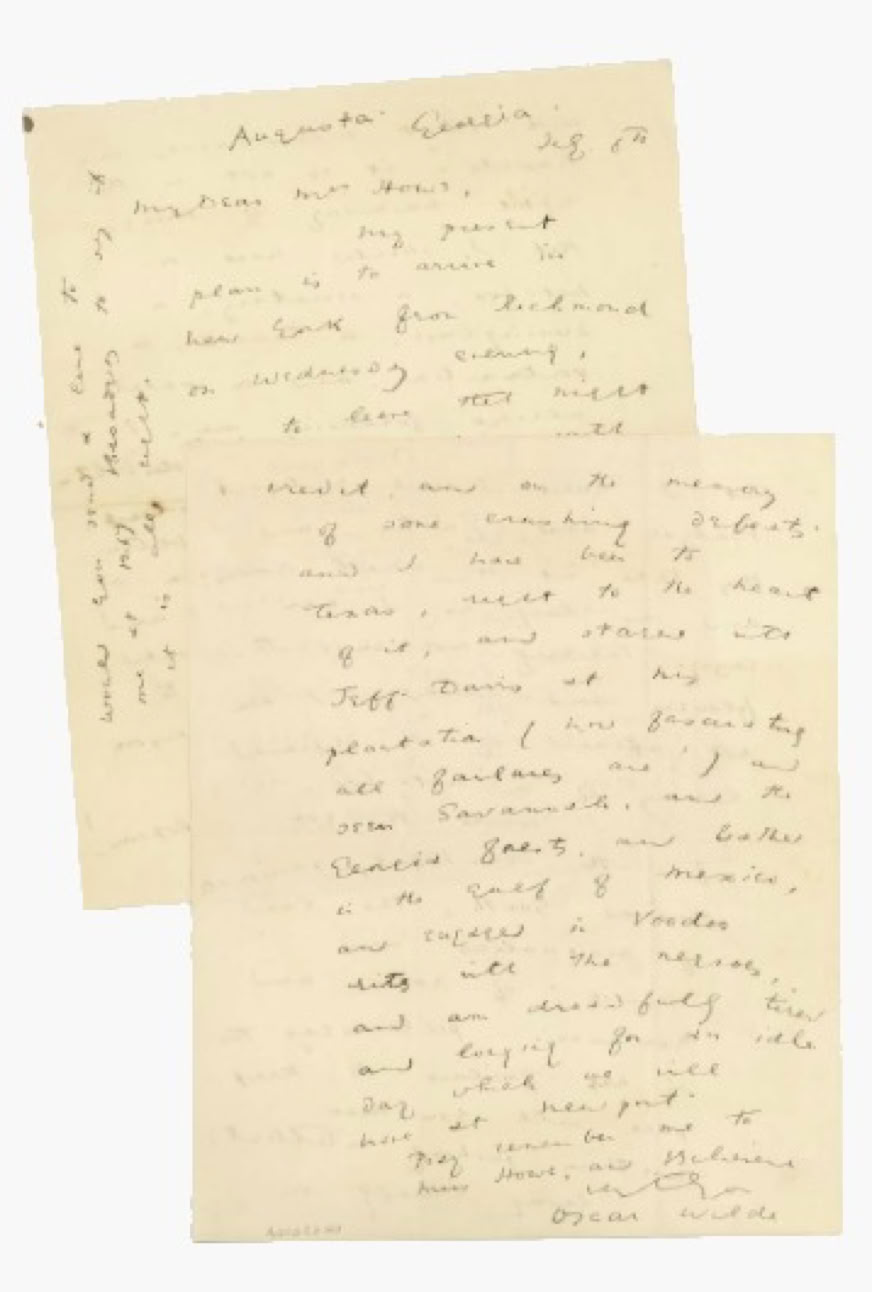 Augusta. Georgia.
July 6th
My Dear Mrs Howe,
My present
plan is to arrive in
New York from Richmond
on Wednesday evening,
to leave that night
with
Would you send a line to
me at 1267 Broadway to say if
it is all right.
credit, and on the memory
of some crushing defeats.
and I have been to
Texas, right to the heart
of it, and stayed with
Jeff. Davis at his
plantation (how fascinating
all failures are!) and
seen Savannah, and the
Georgia forests, and bathed
in the Gulf of Mexico,
and engaged in Voodoo
rites with the negroes,
and am dreadfully tired
and longing for an idle
day which we will
have at Newport.
Pray remember me to
Miss Howe, and Believe
very truly yrs
Oscar Wilde